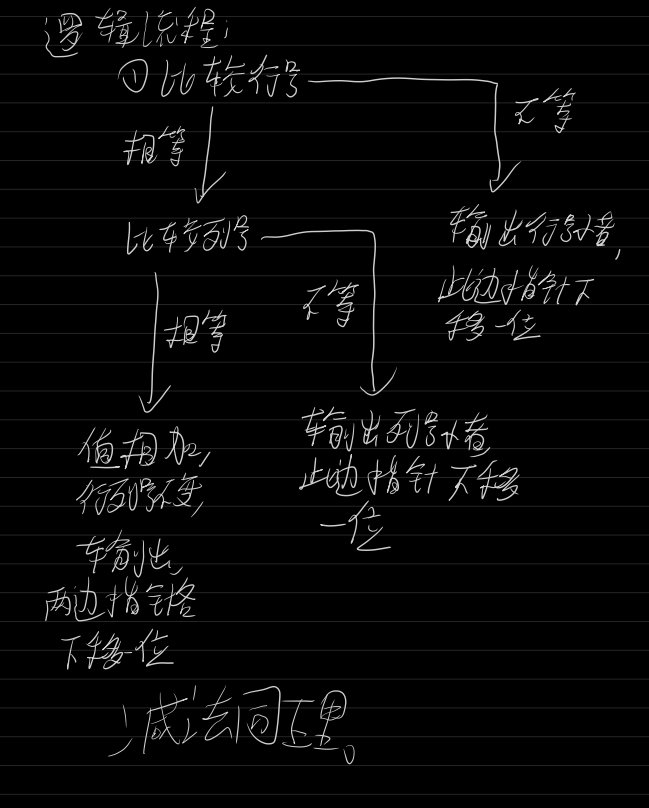 逻辑流程:
①比较行号
不等
相等
输出行号小者,
此边指针下
移一位
比较列号
不等
相等
输出列号小者,
此边指针下移
一位
值相加,
行列号不变,
输出,
两边指针各
下移一位
减法同理。